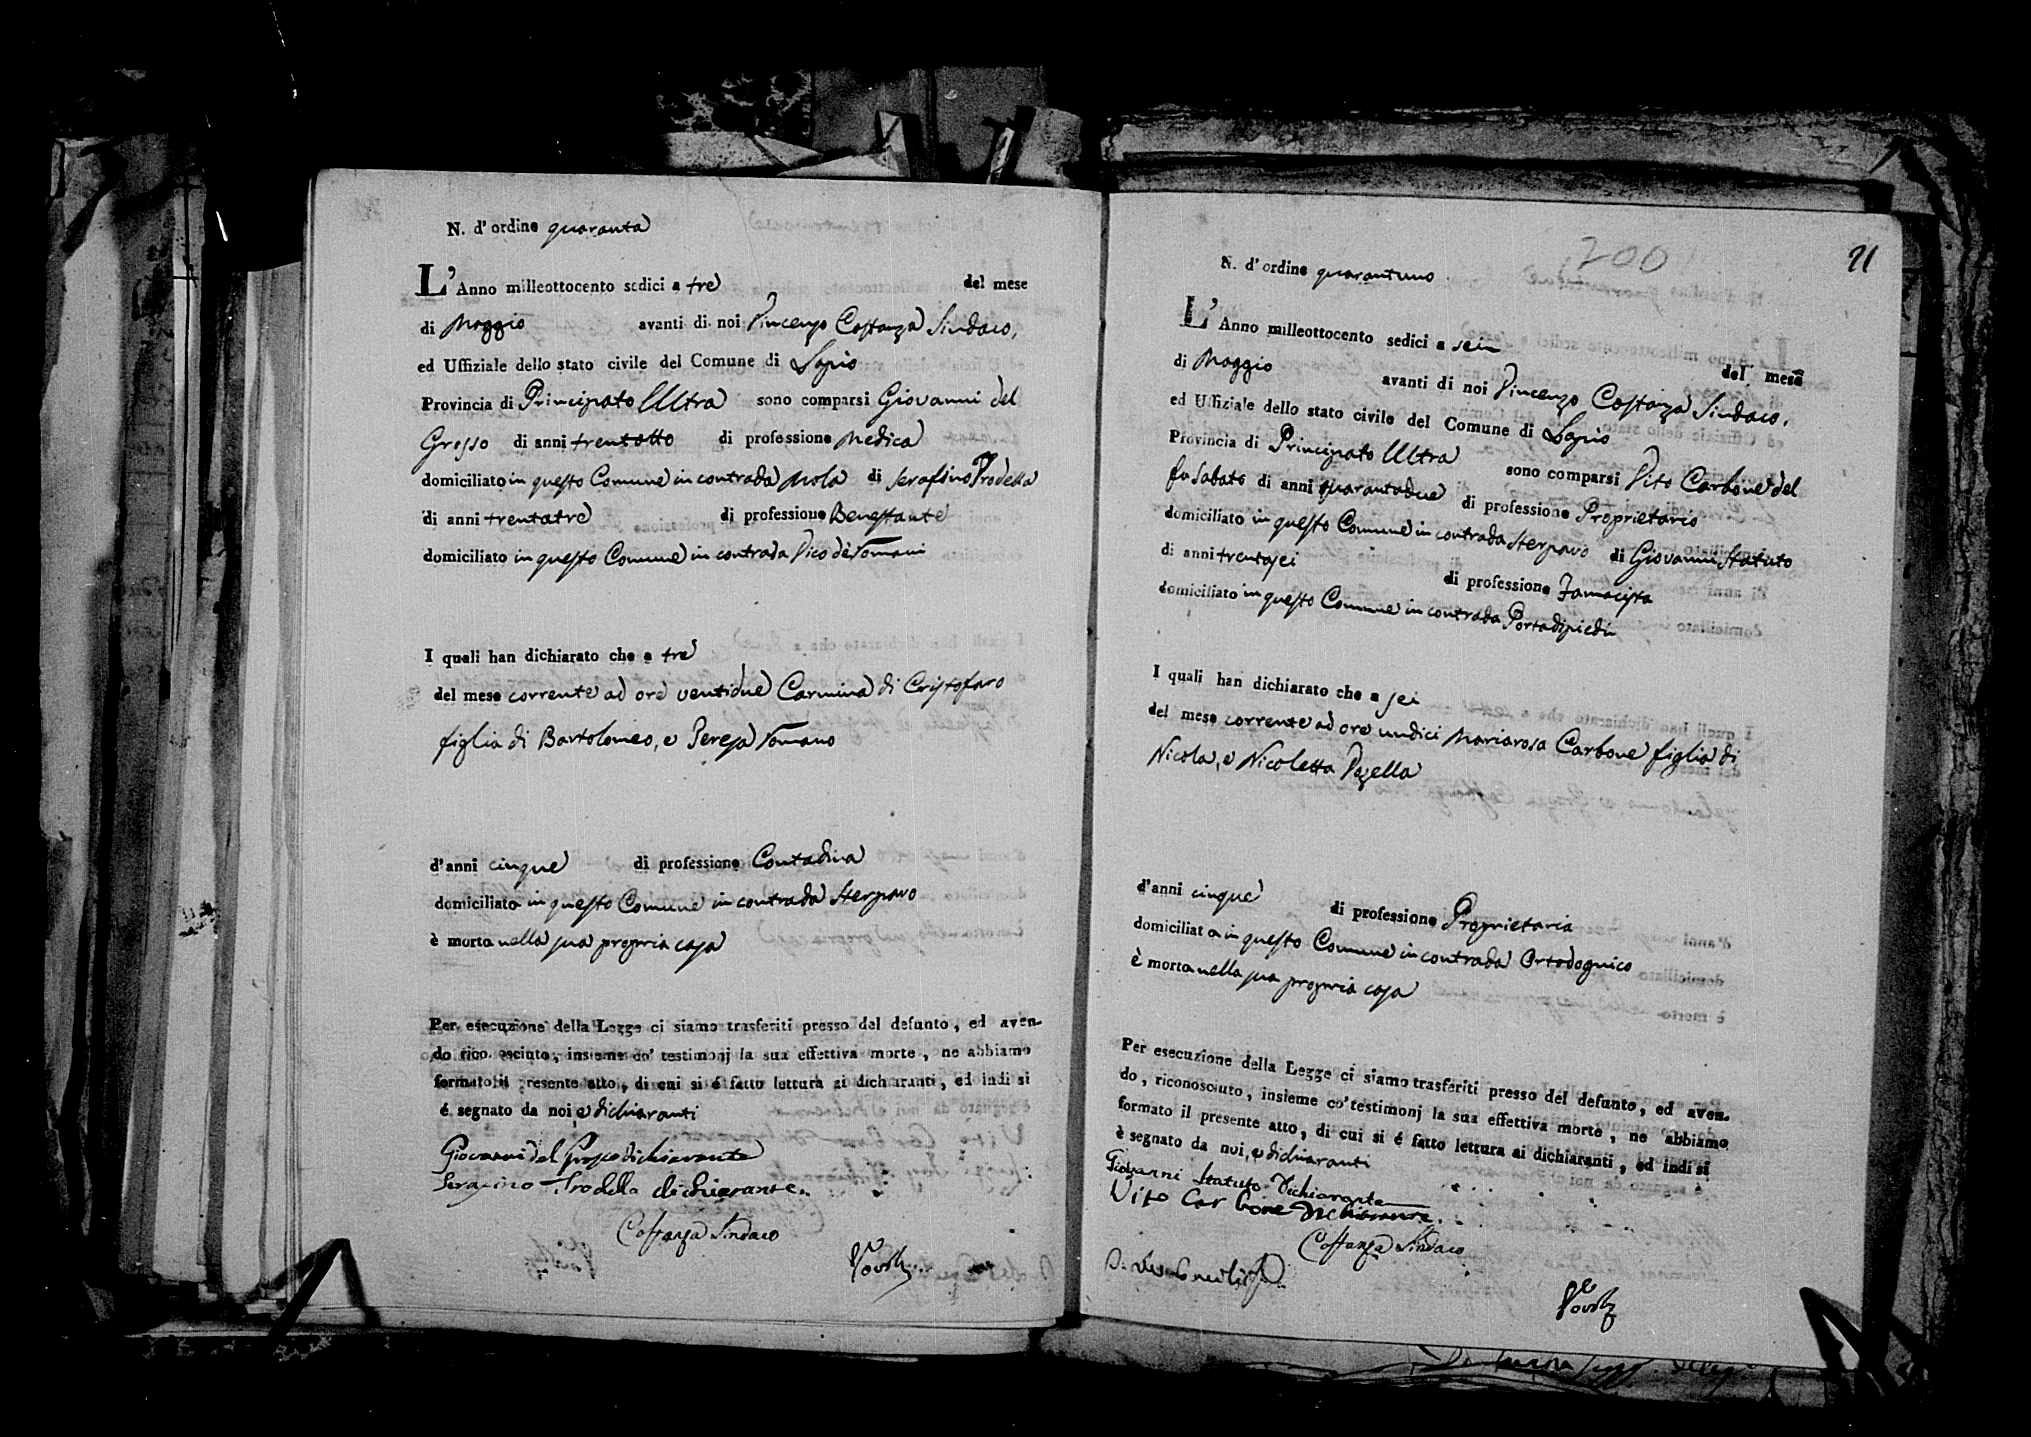 N. d' ordine quaranta
L' Anno milleottocento sedici a tre del mese
di Maggio avanti di noi Vincenzo Costanza Sindaco,
ed Uffiziale dello stato civile del Comune di Lapio
Provincia di Principato Ultra sono comparsi Giovanni del
Grosso di anni trentotto di professione Medica
domiciliato in questo Comune in contrada Mola di Serafino Trodella
di anni trentatre di professione Benestante
domiciliato in questo Comune in contrada Vico de Romani
I quali han dichiarato che a tre
del mese corrente ad ore ventidue Carmina di Cristofaro
figlia di Bartolomeo, e Teresa Romano
d'anni cinque di professione Contadina
domiciliata in questo Comune in contrada Sterparo
è morta nella sua propria casa
Per esecuzione della Legge ci siamo trasferiti presso del defunto, ed aven-
do riconosciuto, insieme co' testimonj la sua effettiva morte, ne abbiamo
formato il presente atto, di cui si é fatto lettura ai dichiaranti, ed indi si
é segnato da noi, e dichiaranti
Giovanni del Grosso dichiarante
Serafino Trodella dichiarante
Costanza Sindaco
200
21
N. d' ordine quarantuno
L' Anno milleottocento sedici a sei del mese
di Maggio avanti di noi Vincenzo Costanza Sindaco,
ed Uffiziale dello stato civile del Comune di Lapio
Provincia di Principato Ultra sono comparsi Vito Carbone del
fu Sabato di anni quarantadue di professione Proprietario
domiciliato in questo Comune in contrada Sterparo di Giovanni Statuto
di anni trentasei di professione Farmacista
domiciliato in questo Comune in contrada Portadipiedi
I quali han dichiarato che a sei
del mese corrente ad ore undici Mariarosa Carbone figlia di
Nicola, e Nicoletta
d'anni cinque di professione Proprietaria
domiciliata in questo Comune in contrada Ortodognico
è morta nella sua propria casa
Per esecuzione della Legge ci siamo trasferiti presso del defunto, ed aven-
do, riconosciuto, insieme co' testimonj la sua effettiva morte, ne abbiamo
formato il presente atto, di cui si é fatto lettura ai dichiaranti, ed indi si
è segnato da noi, e dichiaranti
Giovanni Statuto Dichiarante
Vito Carbone Dichiarante
Costanza Sindaco